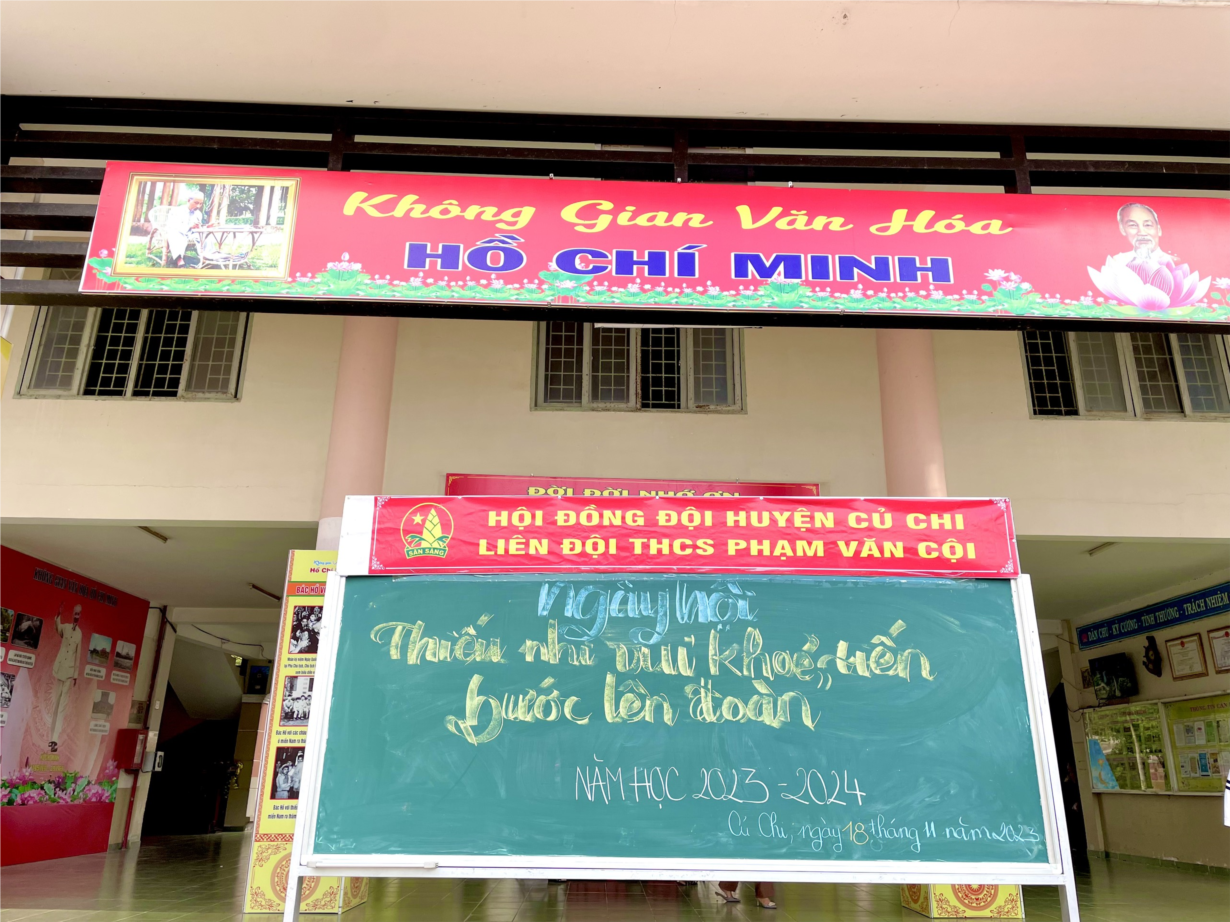 Không Gian Văn Hóa
HỒ CHÍ MINH
ĐỜI ĐỜI NHỚ ƠN
HỘI ĐỒNG ĐỘI HUYỆN CỦ CHI
LIÊN ĐỘI THCS PHẠM VĂN CỘI
SẴN SÀNG
Ngày hội
Thiếu nhi vui khoẻ, tiến
bước lên đoàn
NĂM HỌC 2023-2024
Củ Chi, ngày 18 tháng 11 năm 2023
DÂN CHỦ - KỶ CƯƠNG - TÌNH THƯƠNG - TRÁCH NHIỆM